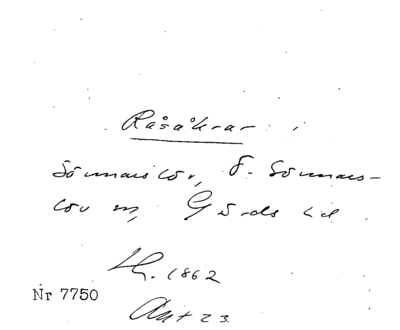 Råsåkrar
Sönnarslöv, Ö. Sönnars-
löv sn, Gärds hd
Lk. 1862
Nr 7750
Akt 23